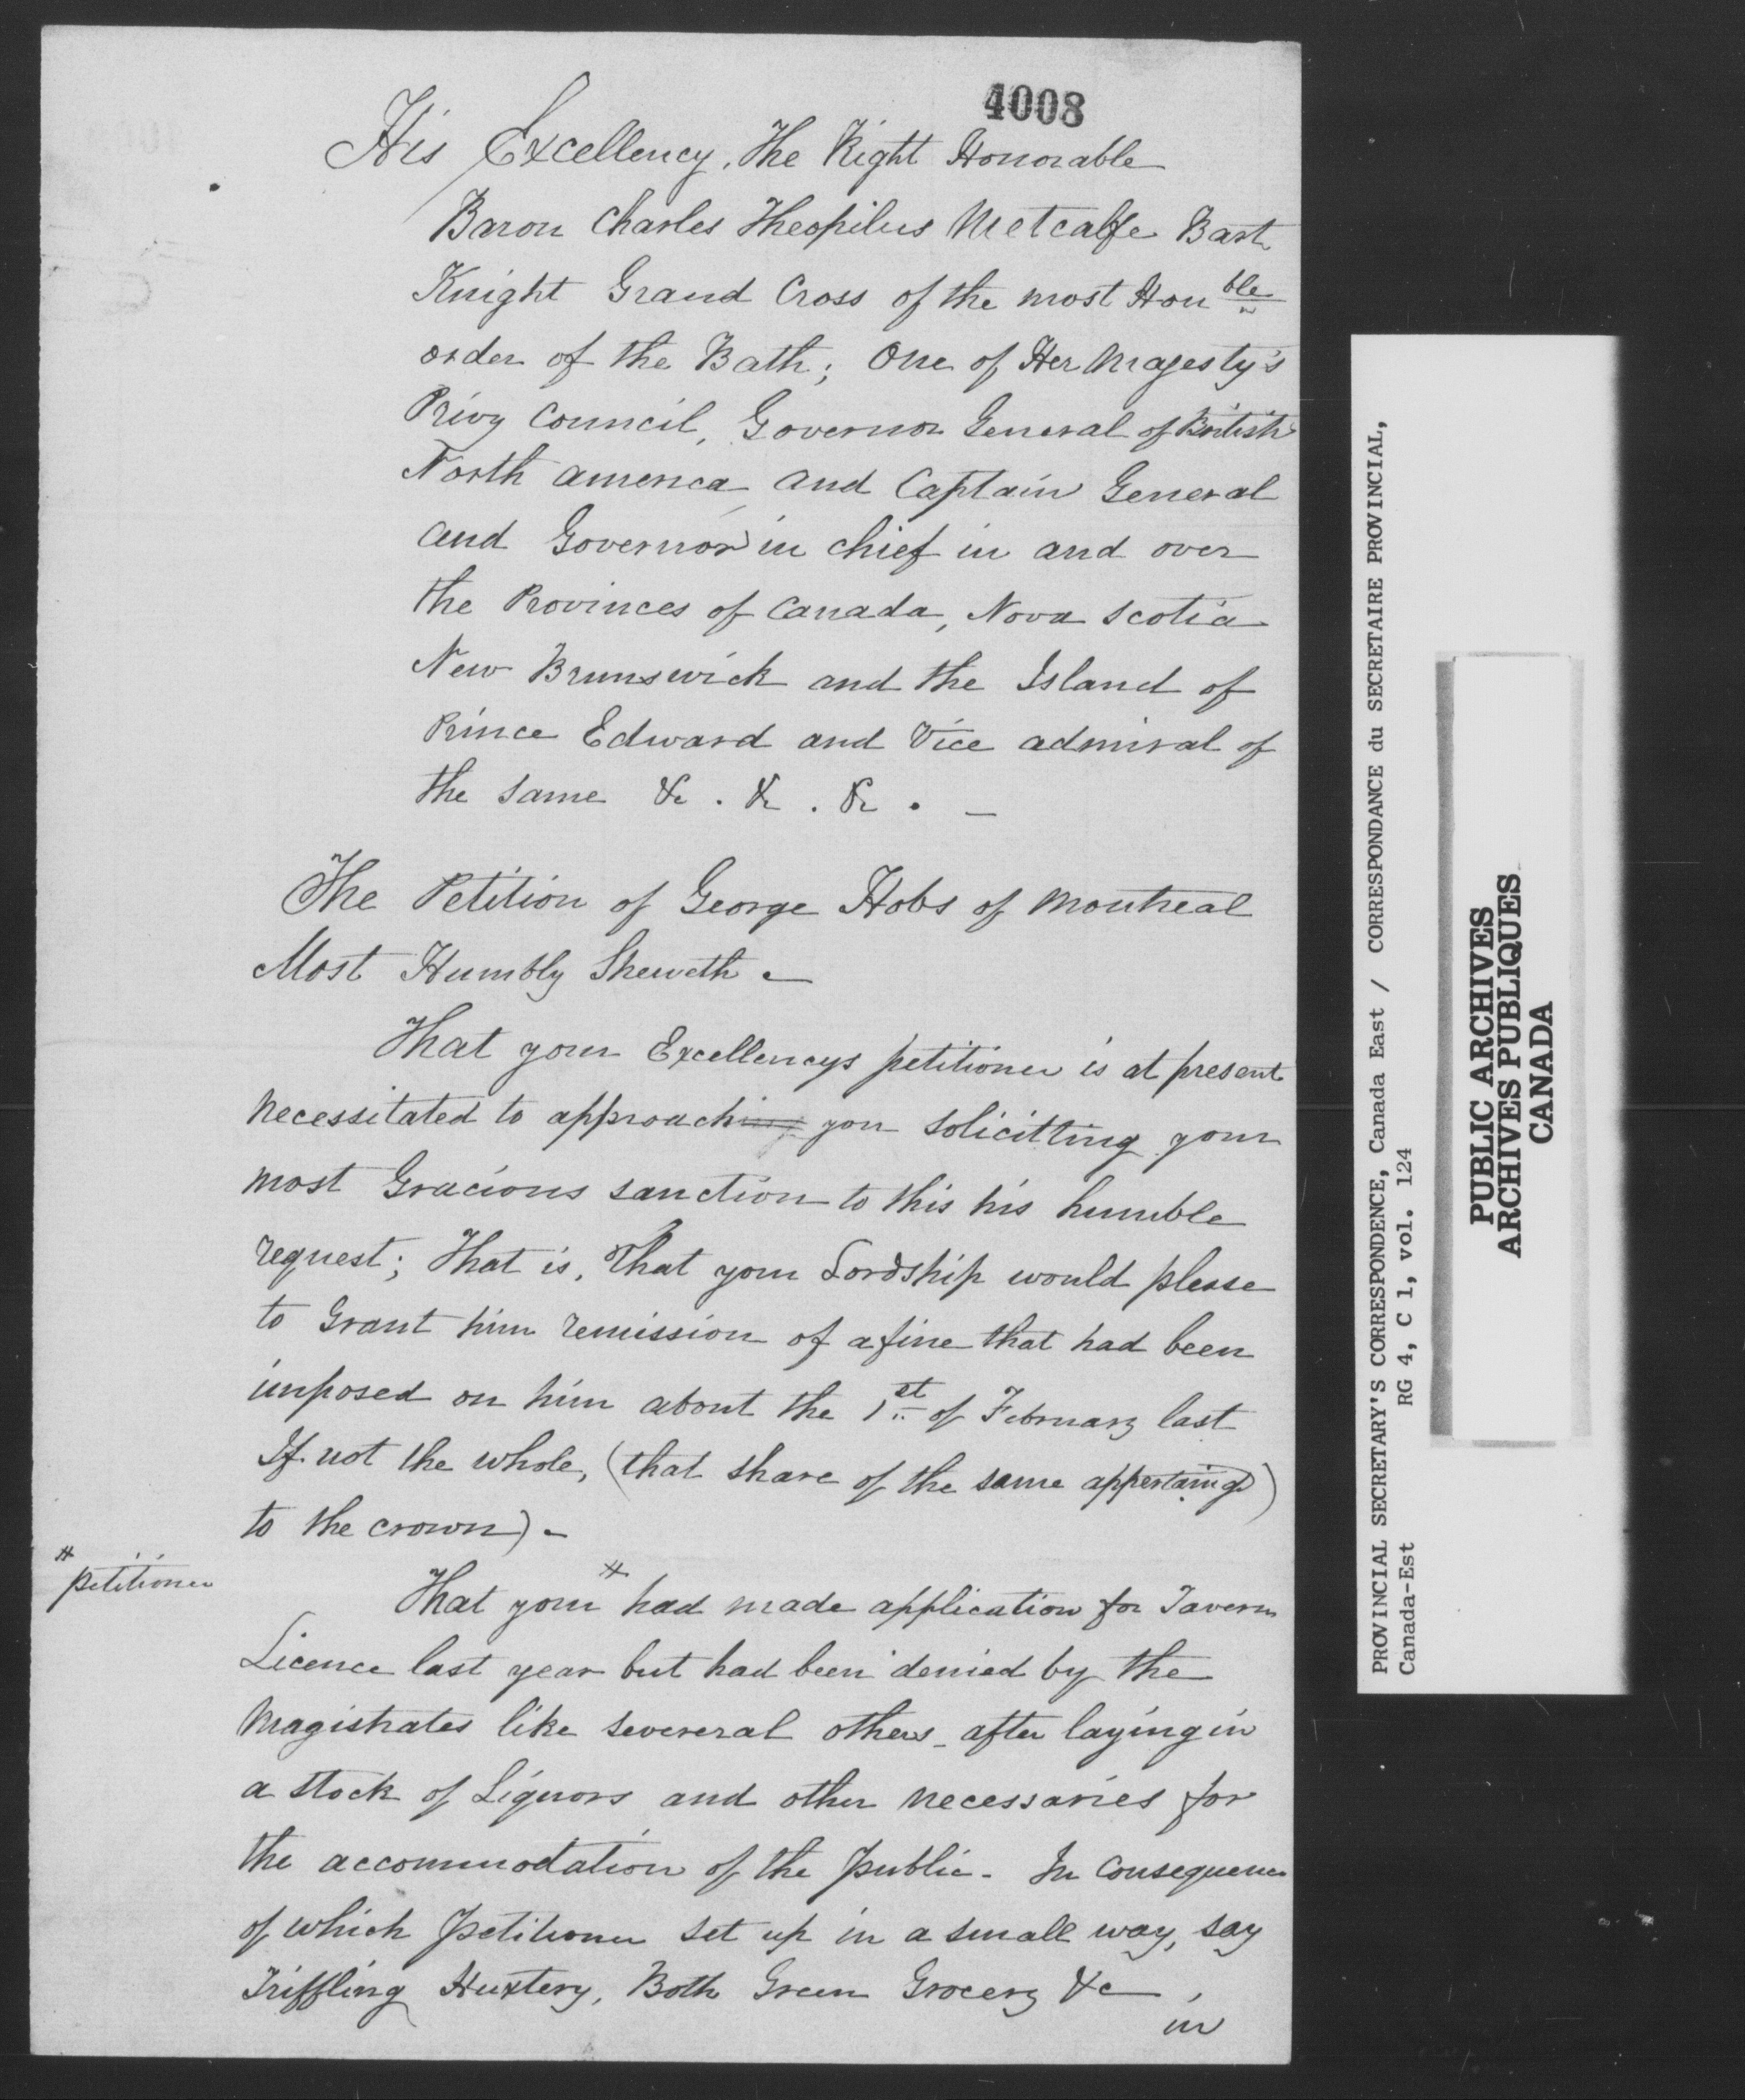 4008
His Excellency, The Right Honorable
Baron Charles Theopilus Metcalfe Bart
Knight Grand Cross of the most Honble
order of the Bath; One of Her Magesty's
Privy Council, Governor General of British
North America and Captain General
and Governor in chief in and over
the Provinces of Canada, Nova Scotia
New Brunswick and the Island of
Prince Edward and Vice admiral of
the same &c . &c . &c . _
The Petition of George Hobs of Montreal
Most Humbly Sheweth _
That your Excellencys petitioner is at present
necessitated to approaching you solicitting your
most Gracious sanction to this his humble
request; That is, That your Lordship would please
to Grant him remission of a fine that had been
imposed on him about the 1st of February last
If not the whole, (that share of the same appertaing)
to the crown) _
# petitioner
That your # had made application for Tavern
Licence last year but had been denied by the
Magistrates like severeral others _ after laying in
a stock of Liquors and other necessaries for
the accommodation of the public - In Consequence
of which petitioner set up in a small way, say
Triffling Huxtery, Both Green Grocery &c ,
in
PROVINCIAL SECRETARY'S CORRESPONDENCE, Canada East / CORRESPONDANCE du SECRETAIRE PROVINCIAL,
Canada-Est RG 4, C 1, vol. 124
PUBLIC ARCHIVES
ARCHIVES PUBLIQUES
CANADA